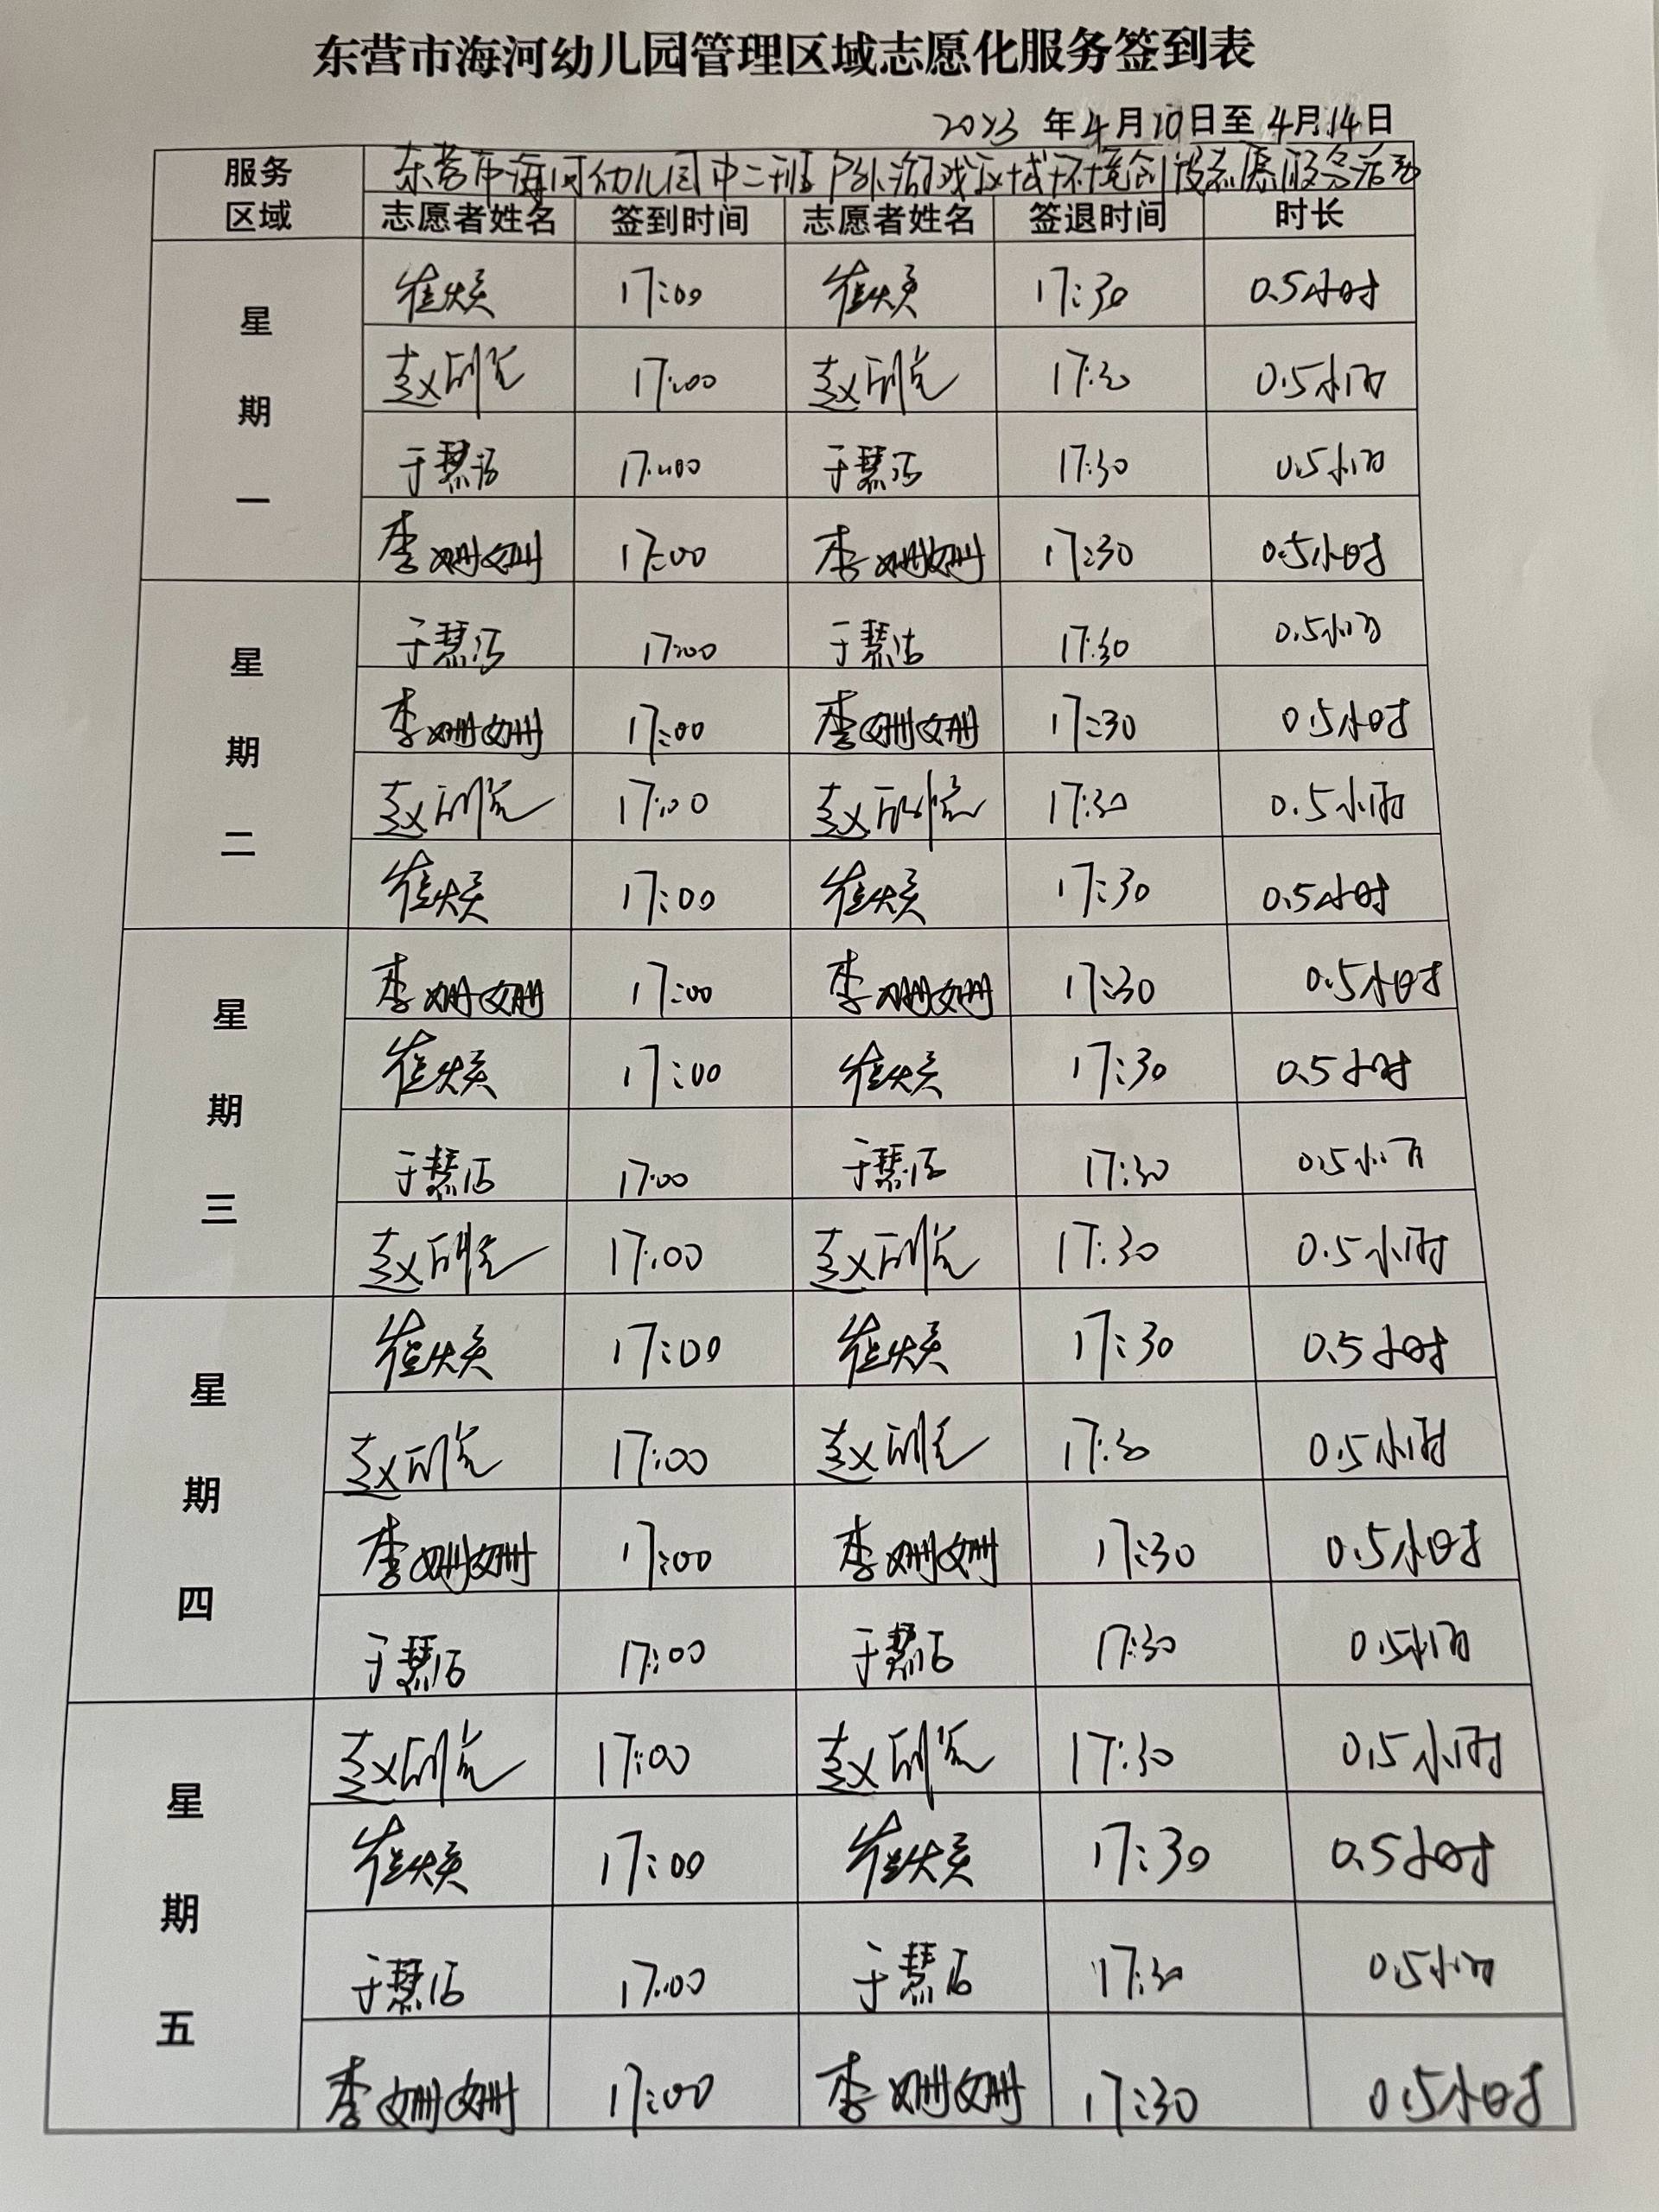 东营市海河幼儿园管理区域志愿化服务签到表
2023 年 4 月 10 日至 4 月 14 日
服务区域 东营市海河幼儿园中二班户外游戏区域环境创设志愿服务活动
志愿者姓名 签到时间 志愿者姓名 签退时间 时长
星期一
崔焕英 17:00 崔焕英 17:30 0.5小时
赵 17:00 赵 17:30 0.5小时
于慧洁 17:00 于慧洁 17:30 0.5小时
李姗姗 17:00 李姗姗 17:30 0.5小时
星期二
于慧洁 17:00 于慧洁 17:30 0.5小时
李姗姗 17:00 李姗姗 17:30 0.5小时
赵 17:00 赵 17:30 0.5小时
崔焕英 17:00 崔焕英 17:30 0.5小时
星期三
李姗姗 17:00 李姗姗 17:30 0.5小时
崔焕英 17:00 崔焕英 17:30 0.5小时
于慧洁 17:00 于慧洁 17:30 0.5小时
赵 17:00 赵 17:30 0.5小时
星期四
崔焕英 17:00 崔焕英 17:30 0.5小时
赵 17:00 赵 17:30 0.5小时
李姗姗 17:00 李姗姗 17:30 0.5小时
于慧洁 17:00 于慧洁 17:30 0.5小时
星期五
赵 17:00 赵 17:30 0.5小时
崔焕英 17:00 崔焕英 17:30 0.5小时
于慧洁 17:00 于慧洁 17:30 0.5小时
李姗姗 17:00 李姗姗 17:30 0.5小时